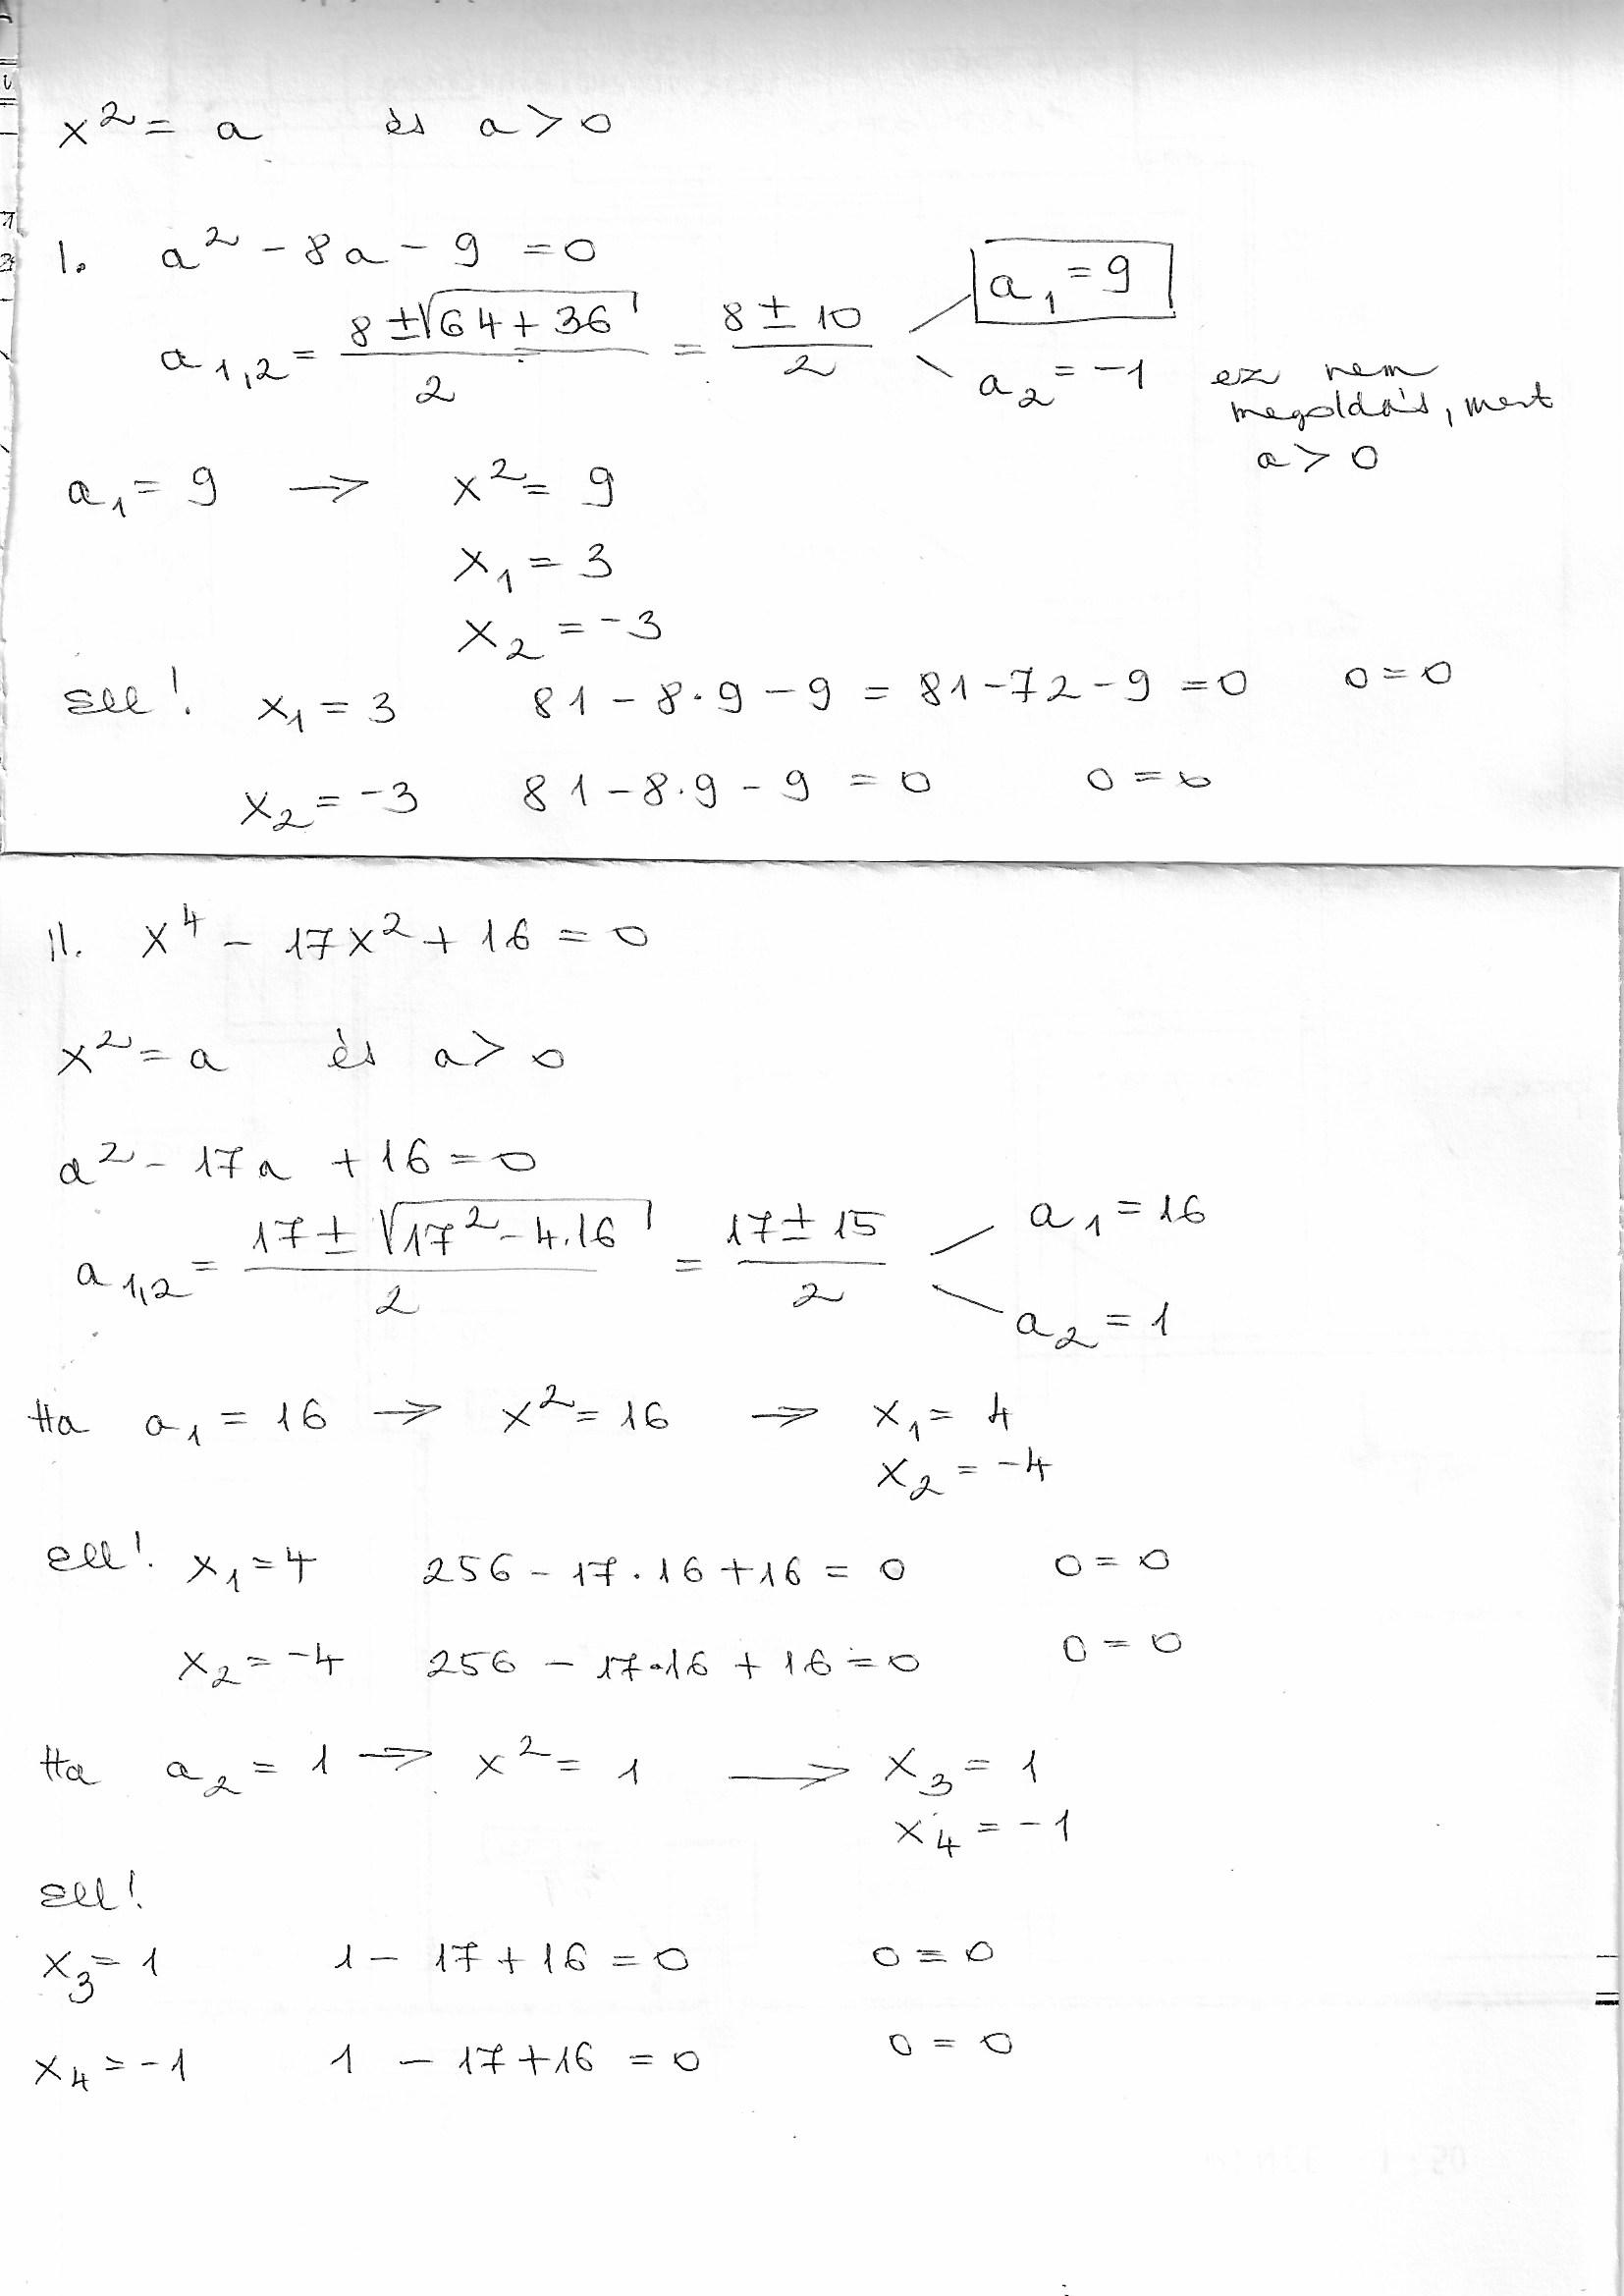 x² = a és a > 0
1. a² - 8a - 9 = 0
a₁,₂ = (8 ± √(64 + 36)) / 2 = (8 ± 10) / 2
a₁ = 9
a₂ = -1 ez nem
megoldás, mert
a > 0
a₁ = 9 → x² = 9
x₁ = 3
x₂ = -3
Ell! x₁ = 3 81 - 8·9 - 9 = 81 - 72 - 9 = 0 0 = 0
x₂ = -3 81 - 8·9 - 9 = 0 0 = 0
II. x⁴ - 17x² + 16 = 0
x² = a és a > 0
a² - 17a + 16 = 0
a₁,₂ = (17 ± √(17² - 4·16)) / 2 = (17 ± 15) / 2
a₁ = 16
a₂ = 1
Ha a₁ = 16 → x² = 16 → x₁ = 4
x₂ = -4
Ell! x₁ = 4 256 - 17·16 + 16 = 0 0 = 0
x₂ = -4 256 - 17·16 + 16 = 0 0 = 0
Ha a₂ = 1 → x² = 1 → x₃ = 1
x₄ = -1
Ell!
x₃ = 1 1 - 17 + 16 = 0 0 = 0
x₄ = -1 1 - 17 + 16 = 0 0 = 0